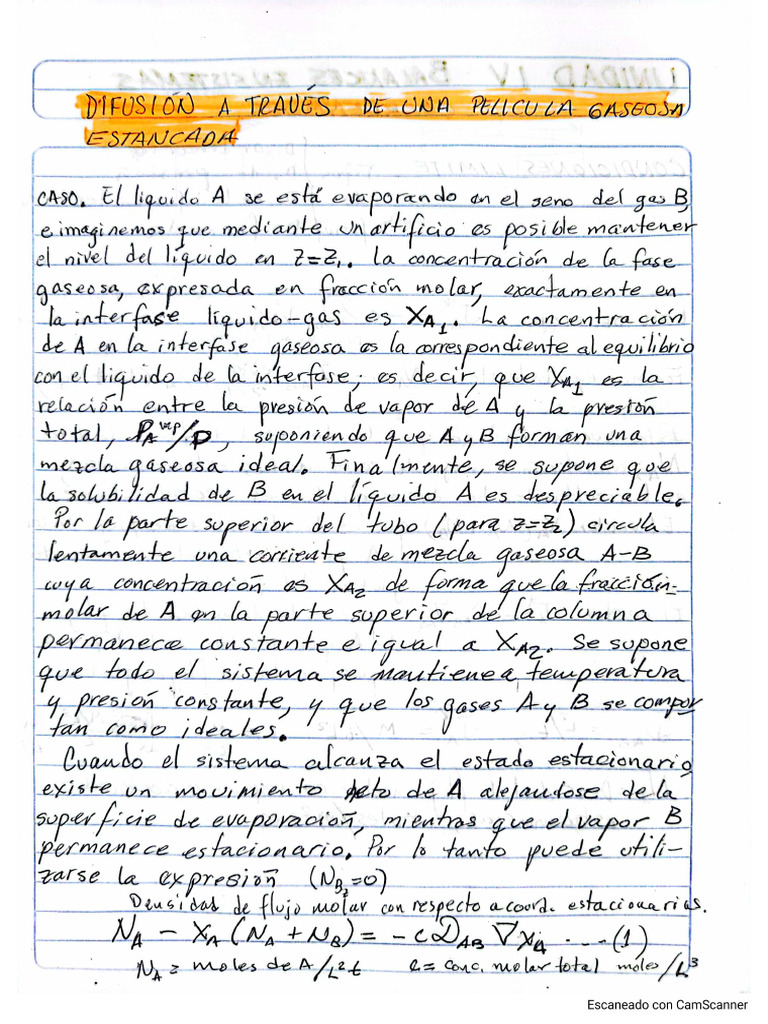 DIFUSIÓN A TRAVÉS DE UNA PELICULA GASEOSA
ESTANCADA
CASO. El liquido A se está evaporando en el seno del gas B,
e imaginemos que mediante un artificio es posible mantener
el nivel del líquido en z=z₁. La concentración de la fase
gaseosa, expresada en fracción molar, exactamente en
la interfase líquido-gas es XA₁. La concentración
de A en la interfase gaseosa es la correspondiente al equilibrio
con el liquido de la interfase; es decir, que XA₁ es la
relación entre la presión de vapor de A y la presión
total, PA^vap/P, suponiendo que A y B forman una
mezcla gaseosa ideal. Finalmente, se supone que
la solubilidad de B en el líquido A es despreciable.
Por la parte superior del tubo (para z=z₂) circula
lentamente una corriente de mezcla gaseosa A-B
cuya concentración es XA₂ de forma que la fracción
molar de A en la parte superior de la columna
permanece constante e igual a XA₂. Se supone
que todo el sistema se mantiene a temperatura
y presión constante, y que los gases A y B se compor
tan como ideales.
Cuando el sistema alcanza el estado estacionario,
existe un movimiento neto de A alejandose de la
superficie de evaporación, mientras que el vapor B
permanece estacionario. Por lo tanto puede utili-
zarse la expresión (NBz=0)
Densidad de flujo molar con respecto a coord. estacionarias.
NA - XA (NA + NB) = -cDAB ∇XA ....(1)
NA = moles de A/L²t c = conc. molar total moles/L³
Escaneado con CamScanner